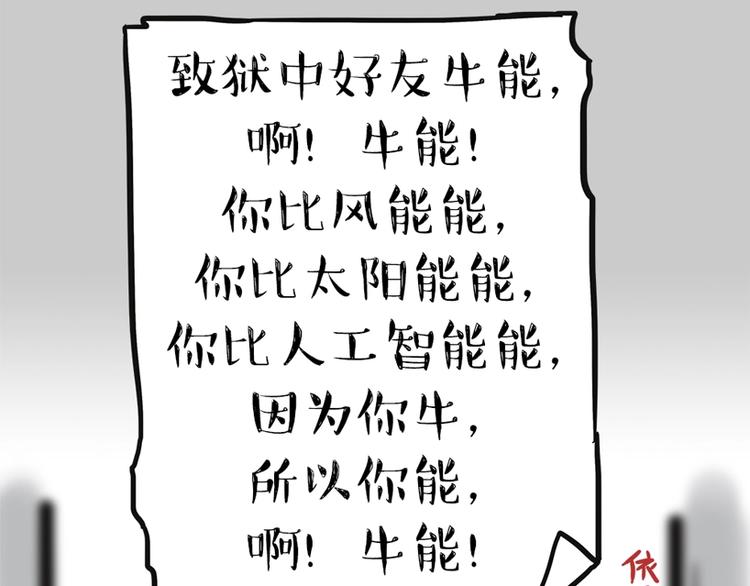 致狱中好友牛能，
啊！ 牛能！
你比风能能，
你比太阳能能，
你比人工智能能，
因为你牛，
所以你能，
啊！ 牛能！
依